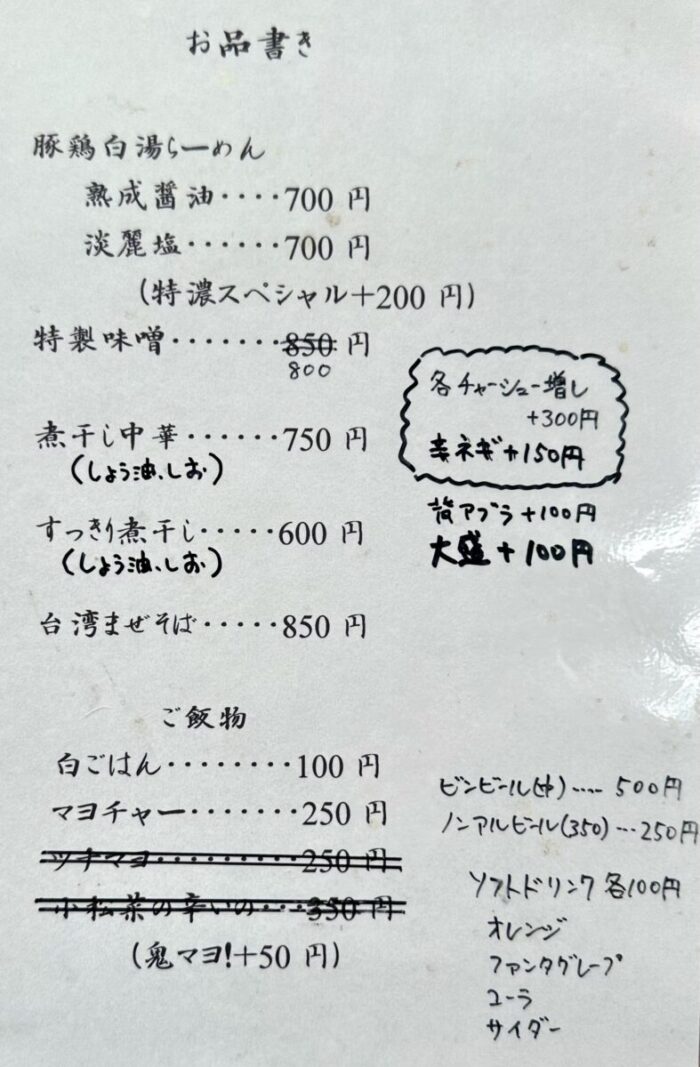 お品書き
豚鶏白湯らーめん
熟成醤油‥‥700 円
淡麗塩‥‥‥700 円
(特濃スペシャル+200 円)
特製味噌‥‥‥・850 円
800
煮干し中華‥‥‥750 円
(しょう油、しお)
すっきり煮干し‥‥・600 円
(しょう油、しお)
台湾まぜそば‥‥・850 円
各チャーシュー増し
+300円
ネギ+150円
背アブラ+100円
大盛+100円
ご飯物
白ごはん‥‥‥‥100 円
マヨチャー‥‥‥・250 円
ツナマヨ‥‥‥‥・250 円
小松菜の辛いの‥・350 円
(鬼マヨ!+50 円)
ビンビール(中)‥‥500円
ノンアルビール(350)…250円
ソフトドリンク各100円
オレンジ
ファンタグレープ
コーラ
サイダー